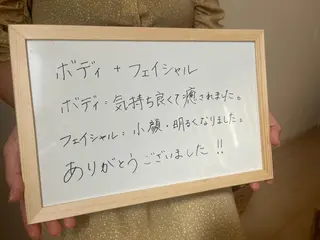 ボディ + フェイシャル
ボディ：気持ち良くて癒されました。
フェイシャル：小顔・明るくなりました。
ありがとうございました!!